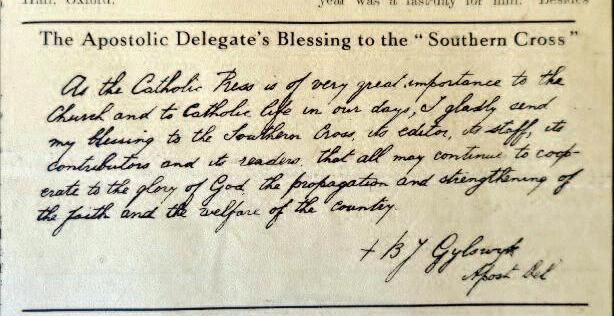 Hall, Oxford.
year was a last-day for him. Besides
The Apostolic Delegate's Blessing to the "Southern Cross"
As the Catholic Press is of very great importance to the
Church and to Catholic life in our days, I gladly send
my blessing to the Southern Cross, its editor, its staff, its
contributors and its readers, that all may continue to coop-
erate to the glory of God, the propagation and strengthening of
the faith and the welfare of the country.
+ B J Gylswyk
Apost Del